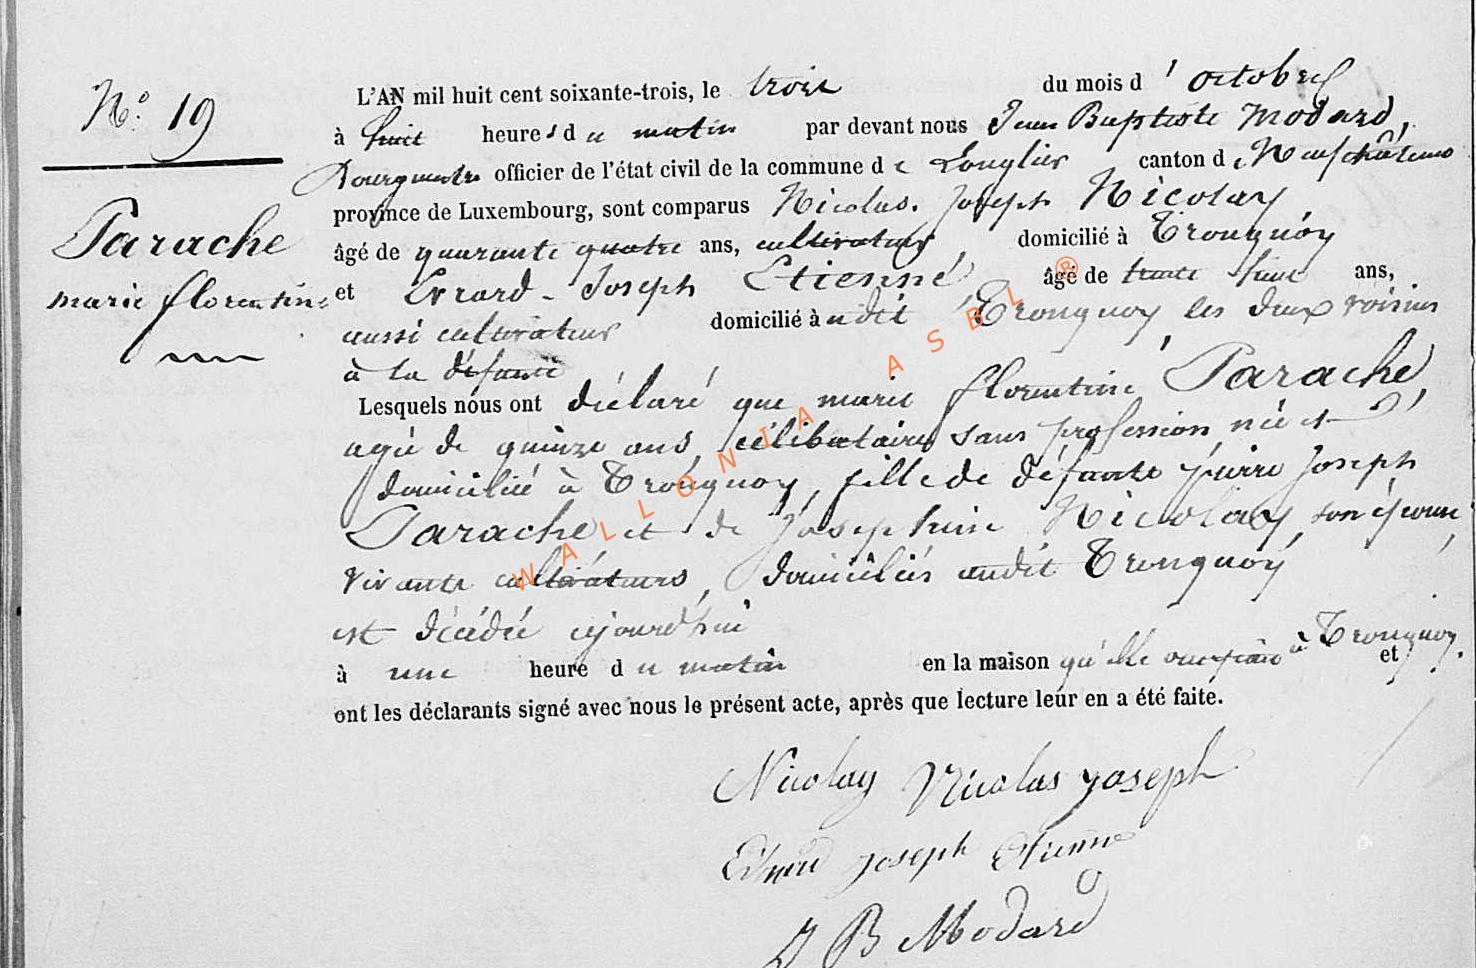 N.o 19
Parache
marie florentine
L'AN mil huit cent soixante-trois, le trois du mois d'octobre
à huit heures du matin par devant nous Jean Baptiste Modard,
Bourgmestre officier de l'état civil de la commune de Longlier canton de Neufchâteau
province de Luxembourg, sont comparus Nicolas Joseph Nicolay
âgé de quarante quatre ans, cultivateur domicilié à Tronquoy
et Evrard Joseph Etienne âgé de trente ans,
aussi cultivateur domicilié audit Tronquoy les deux voisins
à la défunte
Lesquels nous ont déclaré que marie florentine Parache,
agée de quinze ans, célibataire sans profession née et
domiciliée à Tronquoy, fille de défunt pierre Joseph
Parache et de Joséphine Nicolay, son épouse
vivante cultivateurs, domiciliés audit Tronquoy
est décédée aujourd'hui
à une heure du matin en la maison qu'elle à Tronquoy. et
ont les déclarants signé avec nous le présent acte, après que lecture leur en a été faite.
Nicolay Nicolas joseph
Evrard joseph Etienne
J B Modard
WALLONIA ASBL ®